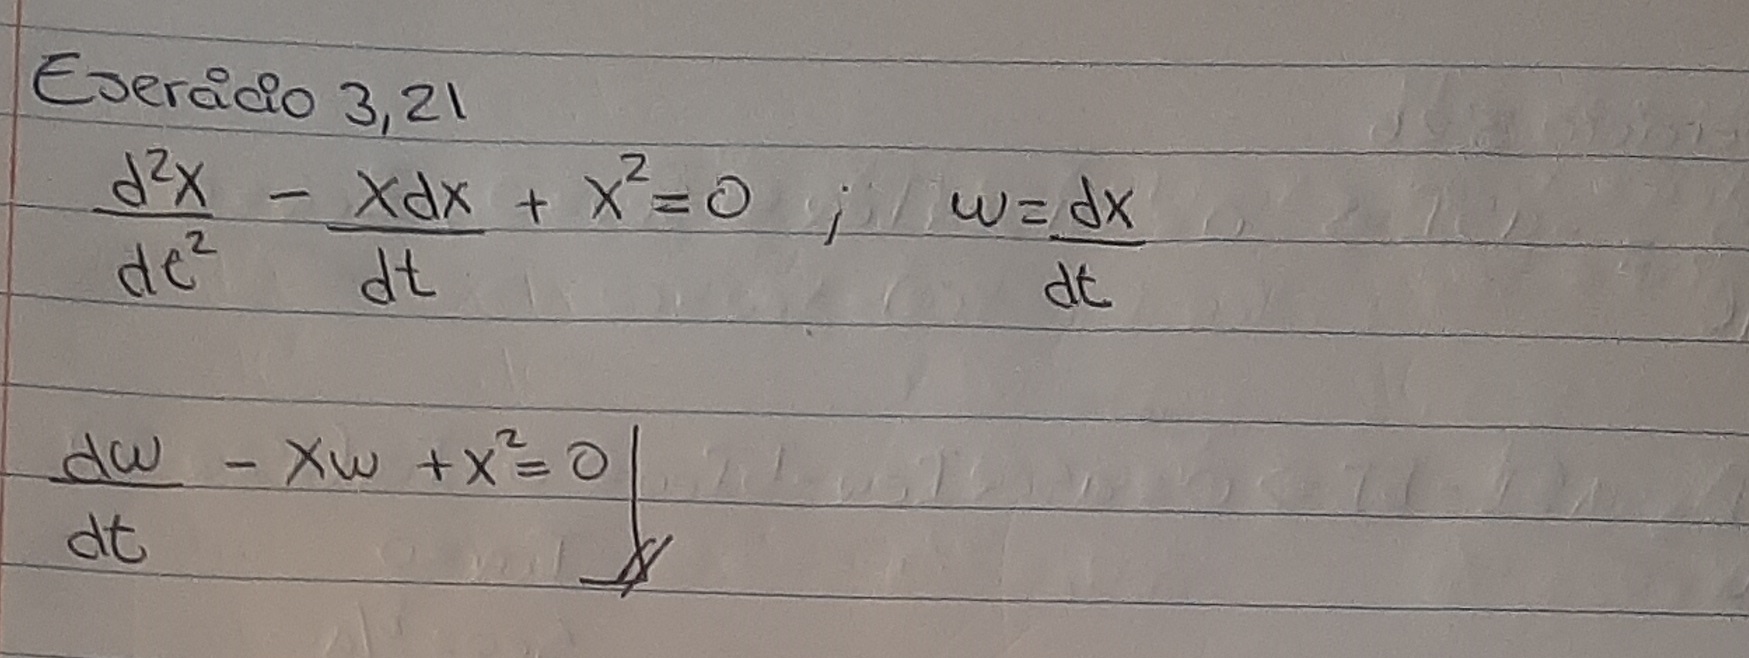 Exercício 3,21
d²x/dt² - xdx/dt + x² = 0 ; w = dx/dt
dw/dt - xw + x² = 0